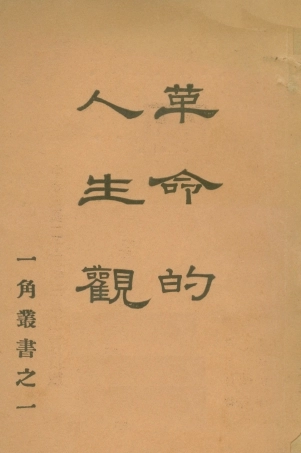 革命的
人生觀
一角叢書之一